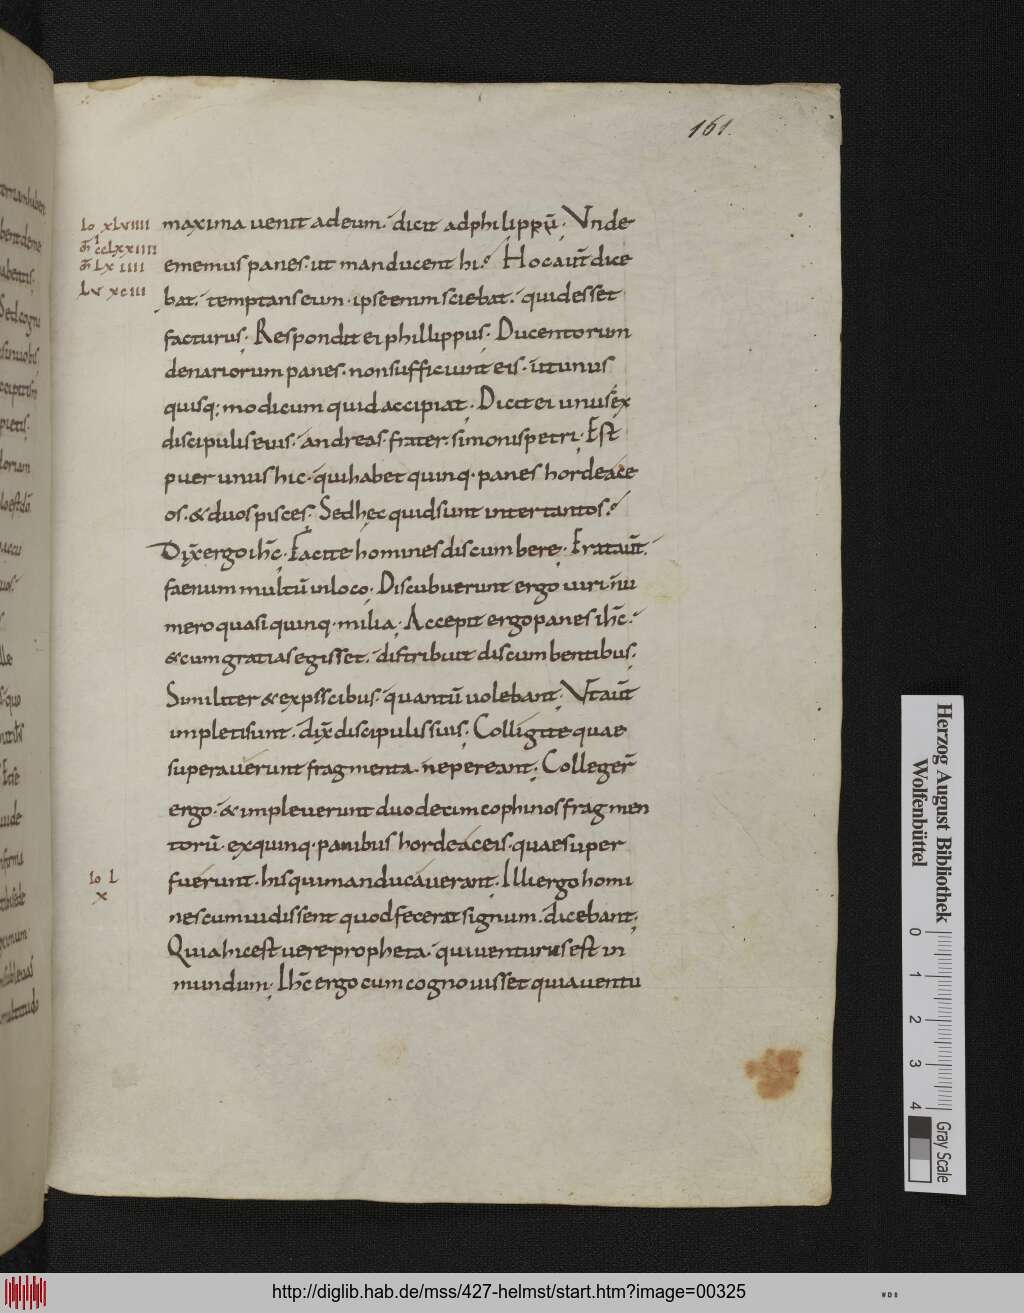 161.
Io xlviiii maxima uenit adeum. dicit adphilippū. Vnde
m̄ cclxxiiii
m̄ Lxiiii ememus panes. ut manducent hi. Hocaūt dice
Lv xciii bat. temptans eum. ipse enim sciebat. quid esset
facturus. Respondit ei phillippus. Ducentorum
denariorum panes. non sufficiunt eis. ut unus
quisq; modicum quid accipiat. Dicit ei unus ex
discipulis eius. andreas. frater simonis petri. Est
puer unus hic. qui habet quinq. panes hordeace
os. & duos pisces. Sed hęc quid sunt inter tantos.
Dix̄ ergo ih̄c. Facite homines discumbere. Erat aūt.
faenum multū in loco. Discubuerunt ergo uiri nu
mero quasi quinq. milia. Accepit ergo panes ih̄c.
& cum gratias egisset. distribuit discumbentibus.
Similiter & ex piscibus. quantū uolebant. Vt aūt
impleti sunt. dix̄ discipulis suis. Colligite quae
superauerunt fragmenta. ne pereant. Collegeꝛ̄
ergo. & impleuerunt duodecim cophinos fragmen
torū. ex quinq. panibus hordeaceis. quae super
Io L fuerunt. his qui manducauerant. Illi ergo homi
x
nes cum uidissent quod fecerat signum. dicebant.
Quia hic est uere propheta. qui uenturus est in
mundum. Ih̄c ergo cum cognouisset quia uentu
Herzog August Bibliothek
Wolfenbüttel
0 1 2 3 4
Gray Scale
http://diglib.hab.de/mss/427-helmst/start.htm?image=00325
WDB